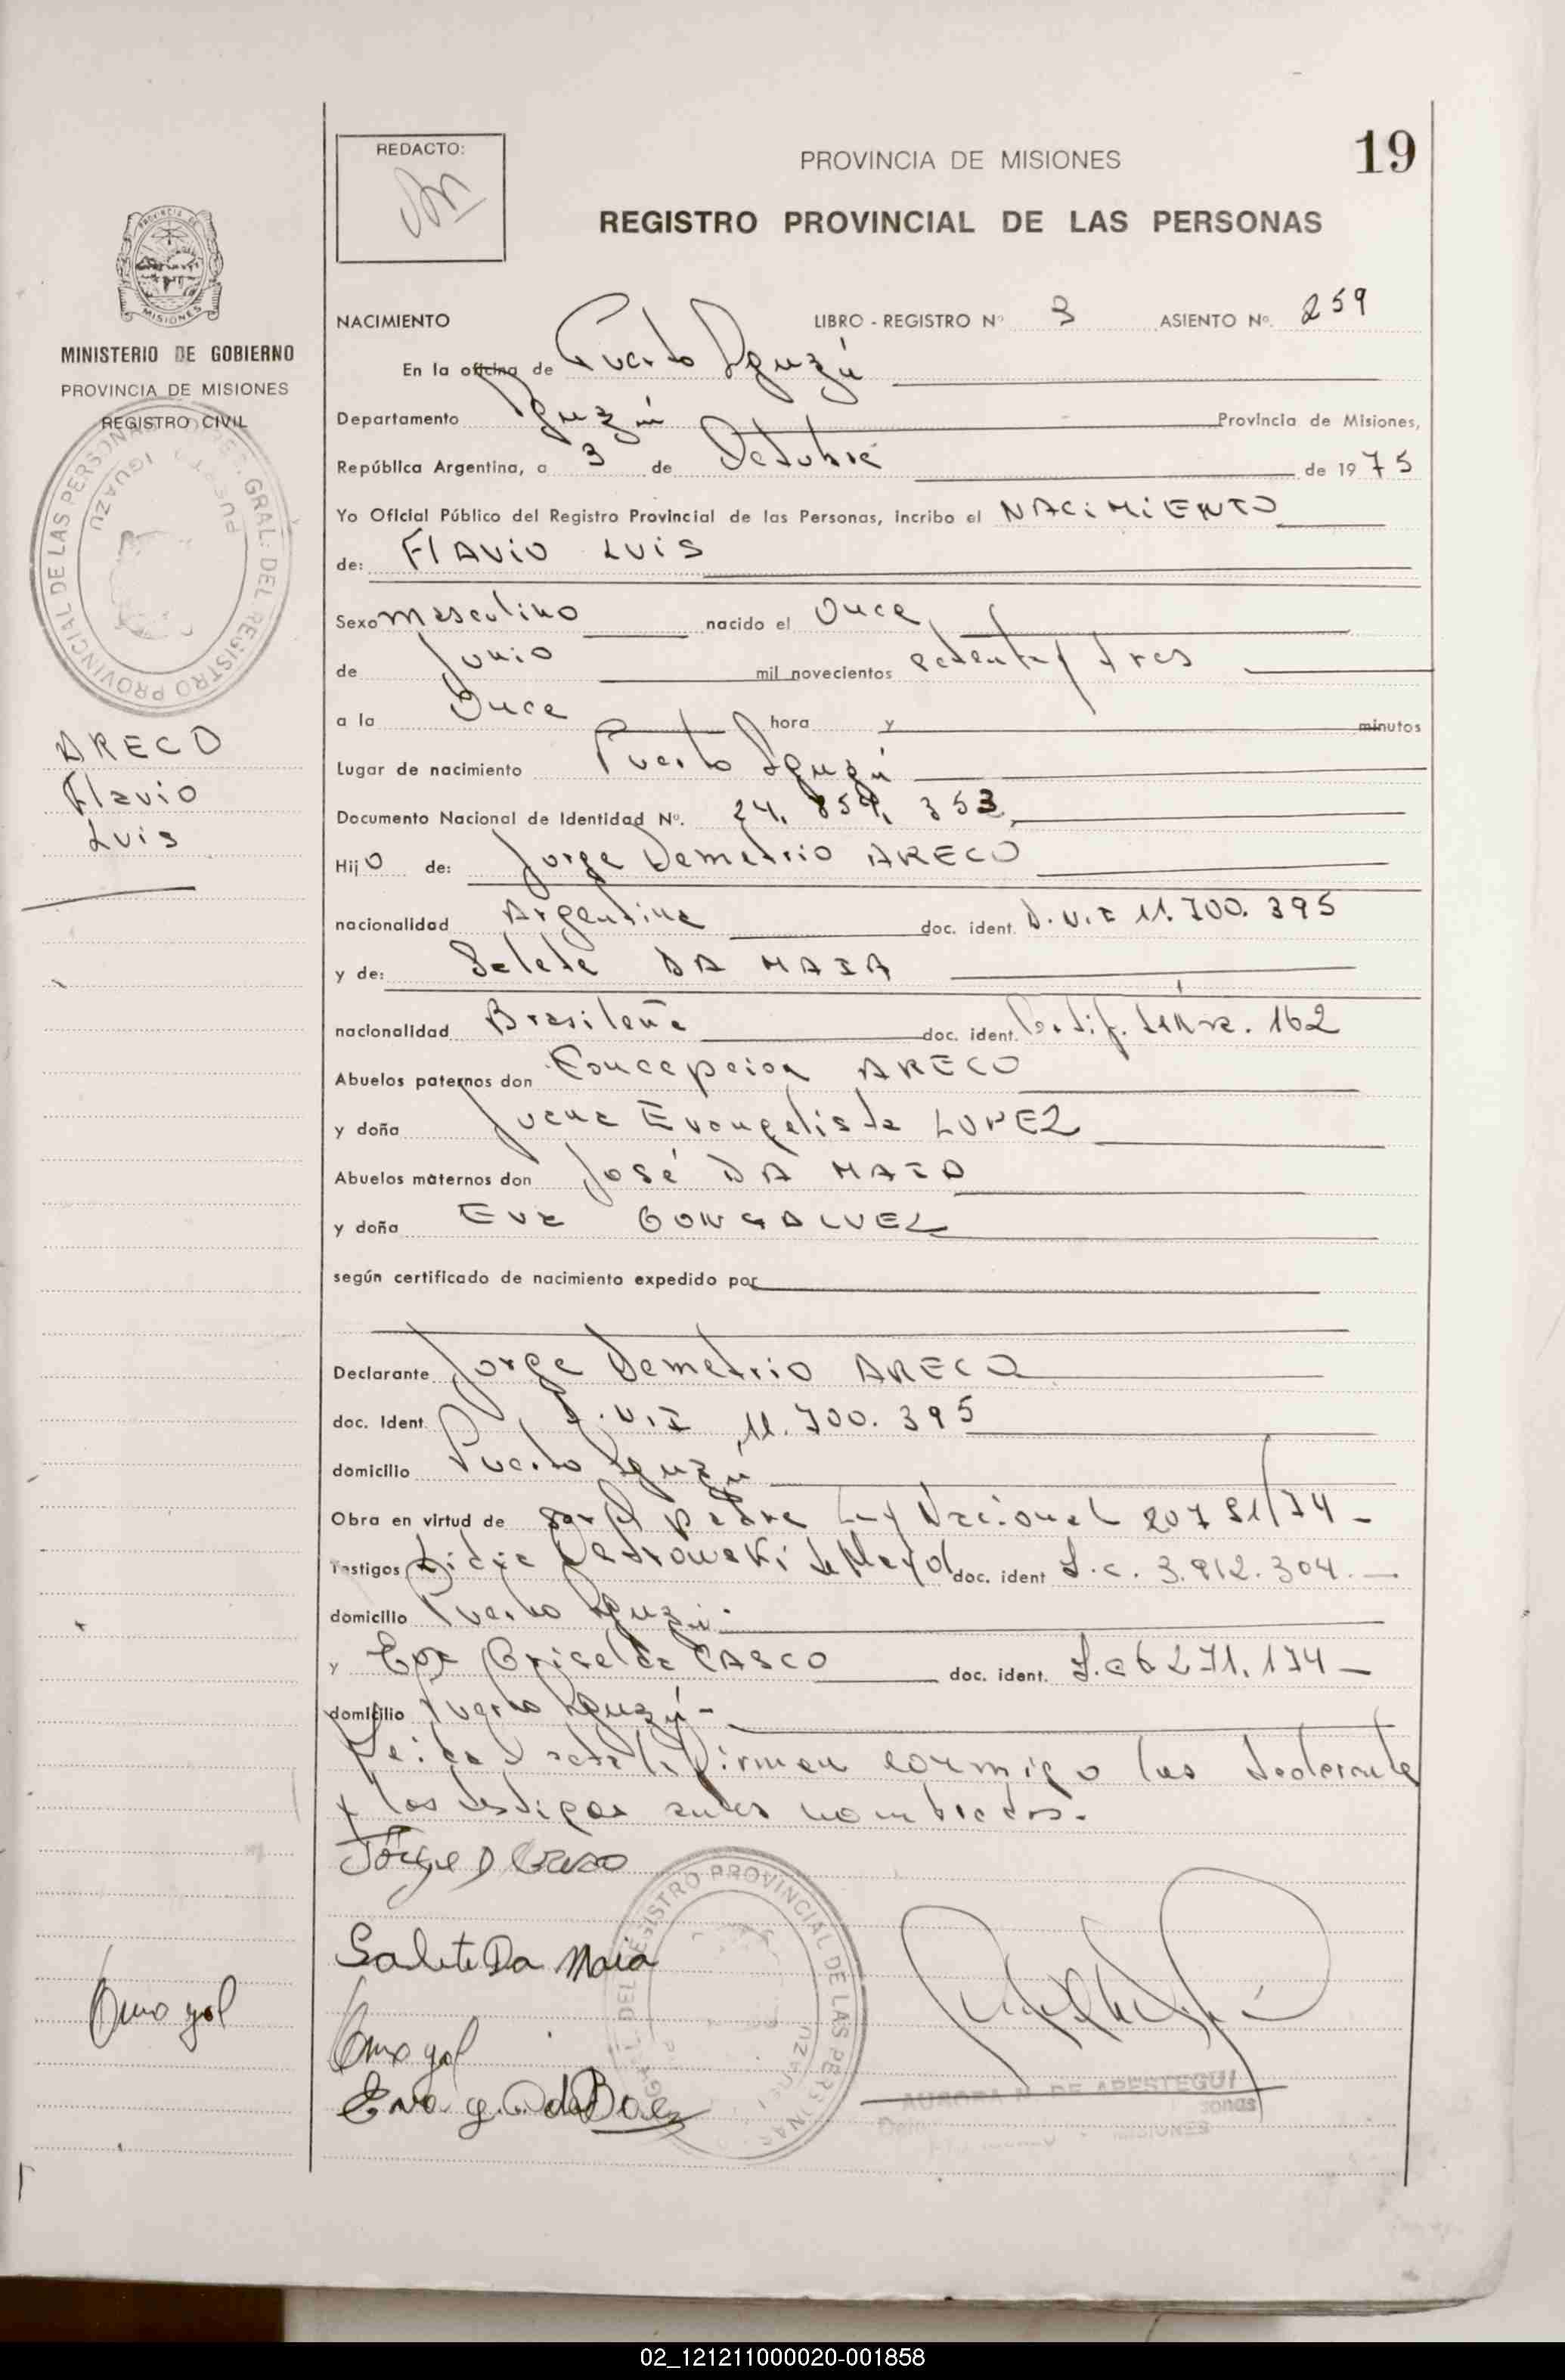 19
REDACTO:
PROVINCIA DE MISIONES
REGISTRO PROVINCIAL DE LAS PERSONAS
MINISTERIO DE GOBIERNO
PROVINCIA DE MISIONES
REGISTRO CIVIL
ARECO
Flavio
Luis
NACIMIENTO LIBRO - REGISTRO Nº 3 ASIENTO Nº 259
En la oficina de Puerto Iguazú
Departamento Iguazú Provincia de Misiones,
República Argentina, a 3 de Octubre de 1975
Yo Oficial Público del Registro Provincial de las Personas, incribo el NACIMIENTO
de: FLAVIO LUIS
Sexo masculino nacido el Once
de Junio mil novecientos setenta y tres
a la Once hora y minutos
Lugar de nacimiento Puerto Iguazú
Documento Nacional de Identidad Nº. 24.859.353
Hijo de: Jorge Demetrio ARECO
nacionalidad Argentina doc. ident. D.N.I 11.700.395
y de: Salete DA MAIA
nacionalidad Brasileña doc. ident. 162
Abuelos paternos don Concepcion ARECO
y doña Juana Evangelista LOPEZ
Abuelos maternos don José DA MAIA
y doña Eva GONGALVEZ
según certificado de nacimiento expedido por
Declarante Jorge Demetrio ARECO
doc. Ident. D.N.I 11.700.395
domicilio Puerto Iguazú
Obra en virtud de ser el padre Ley Nacional 20751/74
Testigos doc. ident L.C. 3.912.304.
domicilio Puerto Iguazú
y Griselda CASCO doc. ident. L.C 6271.174
domicilio Puerto Iguazú
Leida el acta la firman conmigo los declarante
y los testigos antes nombrados.
Jorge D Areco
Salete Da Maia
AURORA N. DE APESTEGUI
MISIONES
02_121211000020-001858